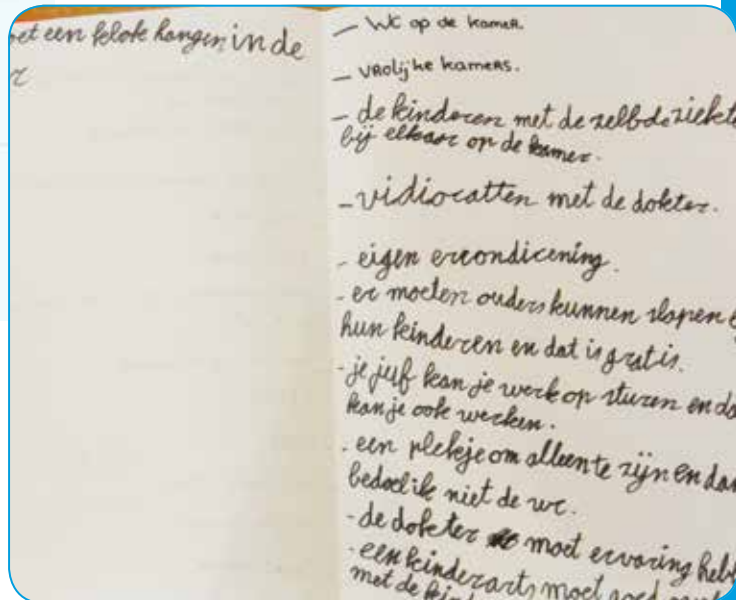 et een klok hangen in de
r
– WC op de kamer.
– vrolijke kamers.
– de kinderen met de zelbde ziekte
bij elkaar op de kamer.
– vidiocatten met de dokter.
- eigen ercondicening.
- er moeten ouders kunnen slapen
hun kinderen en dat is gratis.
- je juf kan je werk op sturen en da
kan je ook werken.
- een plekje om alleen te zijn en dan
bedoel ik niet de wc.
- de dokter moet ervaring hebb
- een kinderarts moet goed
met de kind